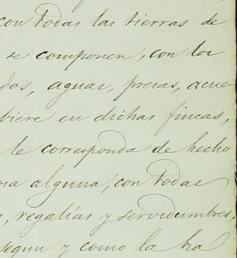 con todas las tierras de
se componen, con los
dos, aguas, presas, acue
biere en dichas fincas,
le corresponda de hecho
na alguna; con todas
, regalías y servidumbres,
segun y como la ha